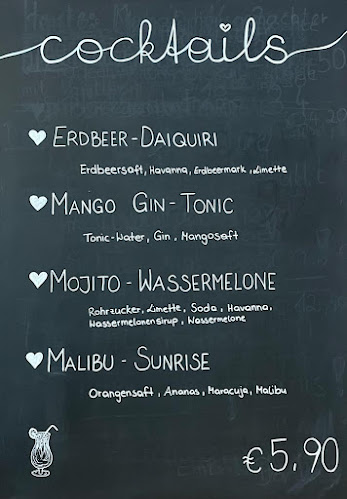 cocktails
ERDBEER-DAIQUIRI
Erdbeersaft, Havanna, Erdbeermark, Limette
MANGO GIN-TONIC
Tonic-Water, Gin, Mangosaft
MOJITO-WASSERMELONE
Rohrzucker, Limette, Soda, Havanna,
Wassermelonensirup, Wassermelone
MALIBU-SUNRISE
Orangensaft, Ananas, Maracuja, Malibu
€5,90